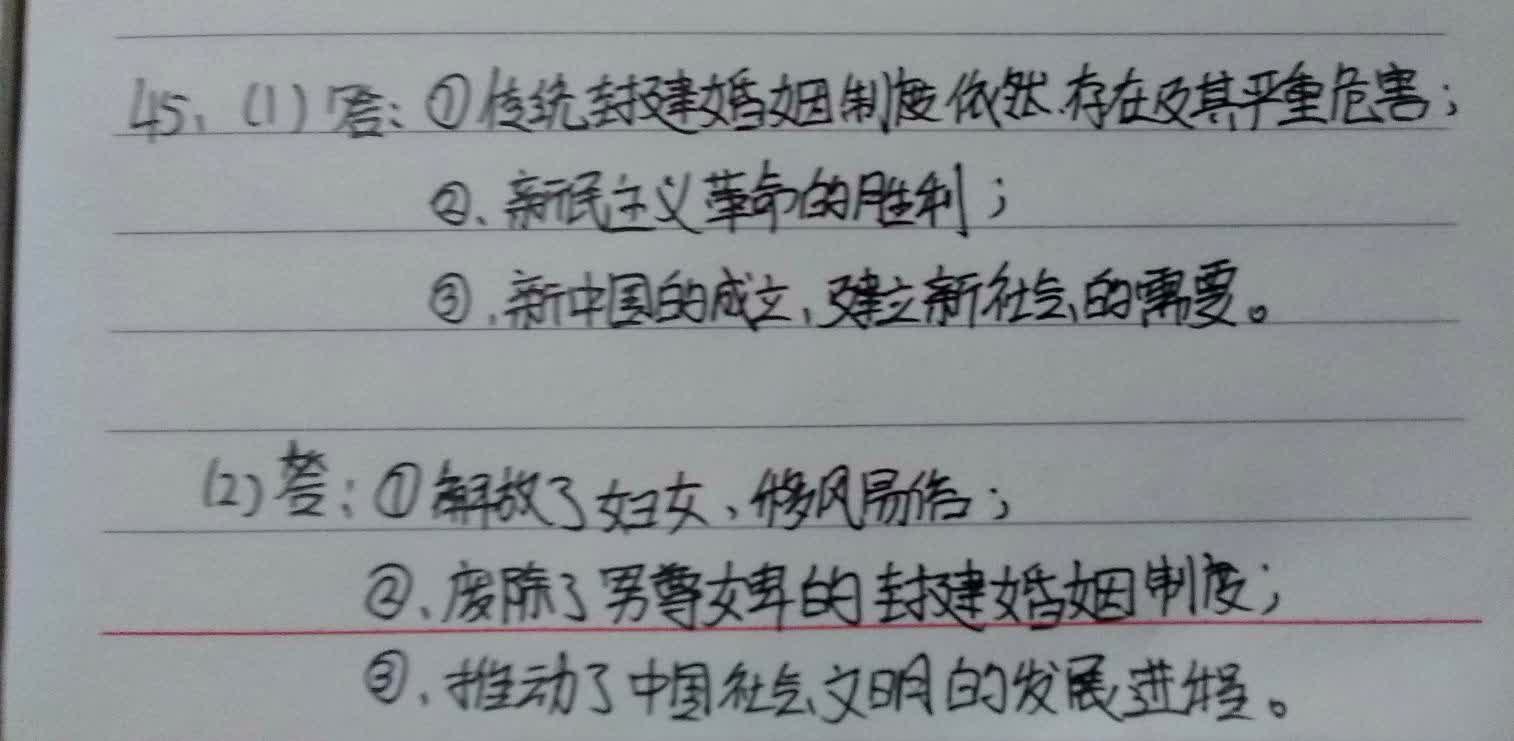 45、(1)答：①传统封建婚姻制度依然存在及其严重危害；
②、新民主义革命的胜利；
③、新中国的成立、建立新社会的需要。
(2)答：①解放了妇女、移风易俗；
②、废除了男尊女卑的封建婚姻制度；
③、推动了中国社会文明的发展进程。